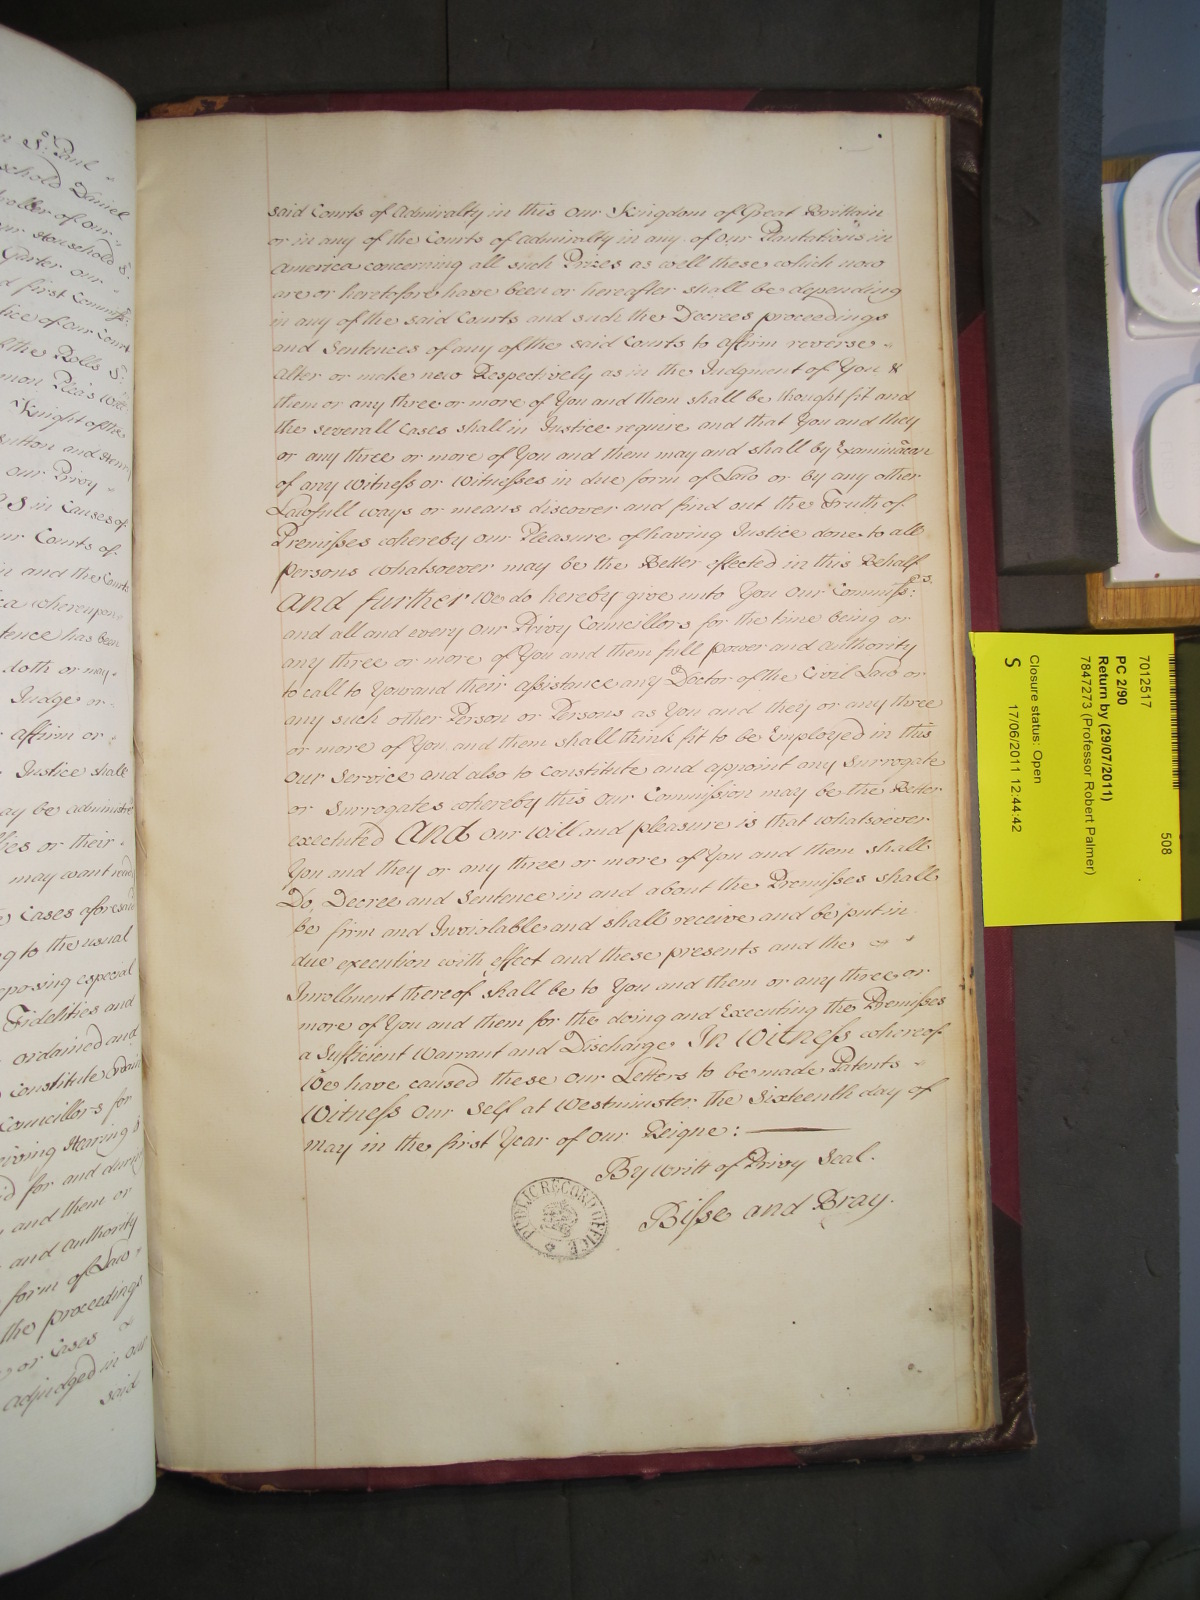 n St. Paul
sehold Daniel
troller of our
our Household S.
Garter our
d first Commiss:
tice of our Court
f the Rolls S.
mon Pleas
Knight of the
utton and Henry
our Privy
in Causes of
ur Courts of
in and the Courts
ca whereupon
tence has been
doth or may
Judge or
affirm or
Justice shall
ay be administr
ties or their
may want
Cases aforesaid
g to the usual
posing especial
Fidelities and
ordained and
Constitute
Councillors for
iving Hearing
id for and during
and them or
and authority
form of Law
the proceedings
or Cases
adjudged in our
said
said Courts of Admiralty in this our Kingdom of Great Brittain
or in any of the Courts of Admiralty in any of our Plantations in
America concerning all such Prizes as well these which now
are or heretofore have been or hereafter shall be depending
in any of the said Courts and such the Decrees proceedings
and Sentences of any of the said Courts to affirm reverse
alter or make new Respectively as in the Judgment of You &
them or any three or more of You and them shall be thought fit and
the severall Cases shall in Justice require and that You and they
or any three or more of You and them may and shall by Examinacon
of any Witness or Witnesses in due form of Law or by any other
Lawfull ways or means discover and find out the Truth of
Premisses whereby our Pleasure of having Justice done to all
persons whatsoever may be the Better effected in this Behalf
And further We do hereby give unto You our Commiss:rs
and all and every our Privy Councillors for the time being or
any three or more of You and them full power and authority
to call to Your and their assistance any Doctor of the Civil Law or
any such other Person or Persons as You and they or any three
or more of You and them shall think fit to be Employed in this
our Service and also to constitute and appoint any Surrogate
or Surrogates whereby this our Commission may be the Better
executed And our Will and pleasure is that whatsoever
You and they or any three or more of You and them shall
Do, Decree and Sentence in and about the Premisses shall
be firm and Inviolable and shall receive and be put in
due execution with effect and these presents and the
Inrollment thereof shall be to You and them or any three or
more of You and them for the doing and Executing the Premisses
a Sufficient Warrant and Discharge In Witness whereof
We have caused these our Letters to be made Patents
Witness our Self at Westminster the Sixteenth day of
May in the first Year of our Reigne:
By Writt of Privy Seal.
Bisse and Bray.
PUBLIC RECORD OFFICE
508
7012517
PC 2/90
Return by (29/07/2011)
7847273 (Professor Robert Palmer)
Closure status: Open
S 17/06/2011 12:44:42